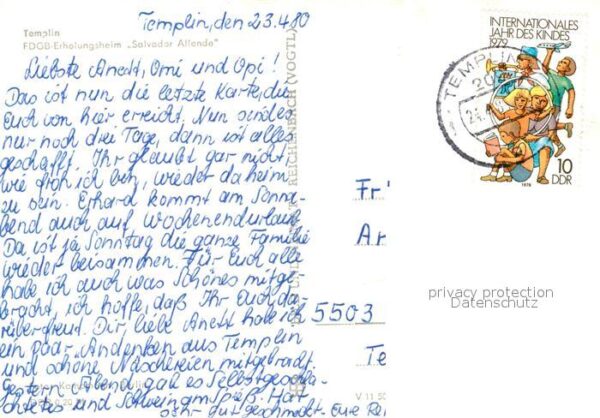 Templin, den 23.4.80
Templin
FDGB-Erholungsheim „Salvador Allende"
Liebste Anett, Omi und Opi!
Das ist nun die letzte Karte, die
Euch von hier erreicht. Nun sind es
nur noch drei Tage, dann ist alles
geschafft. Ihr glaubt gar nicht,
wie froh ich bin, wieder daheim
zu sein. Erhard kommt am Sonna-
bend auch auf Wochenendurlaub.
Da ist ja Sonntag die ganze Familie
wieder beisammen. Für Euch alle
habe ich auch was Schönes mitge-
bracht, ich hoffe, daß Ihr Euch da-
rüber freut. Dir, liebe Anett habe ich
ein paar „Andenken aus Templin
und schöne Näschereien mitgebracht.
Gestern Abend gab es Selbstgeschla-
chtetes und Schwein am Spieß. Hat
sehr gut geschmeckt. Eure
REICHENBACH (VOGTL)
V 11 50
INTERNATIONALES
JAHR DES KINDES
1979
10
DDR
1979
TEMPLIN
20
Fr
An
5503
Te
privacy protection
Datenschutz